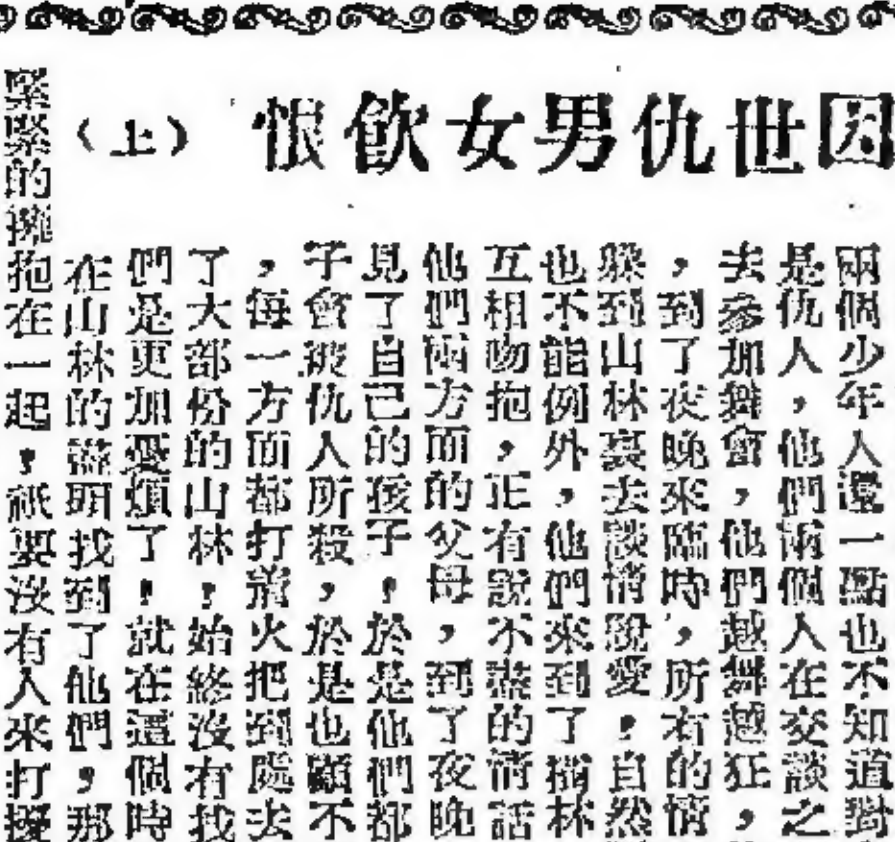 因世仇男女飲恨（上）
兩個少年人還一點也不知道對
是仇人，他們兩個人在交談之
去參加舞會，他們越舞越狂，
，到了夜晚來臨時，所有的情
躲到山林裏去談情說愛，自然
也不能例外，他們來到了樹林
互相吻抱，正有說不盡的情話
他們兩方面的父母，到了夜晚
見了自己的孩子，於是他們都
子會被仇人所殺，於是也顧不
，每一方面都打着火把到處去
了大部份的山林，始終沒有找
們是更加憂煩了，就在這個時
在山林的盡頭找到了他們，那
緊緊的擁抱在一起，祇要沒有人來打擾